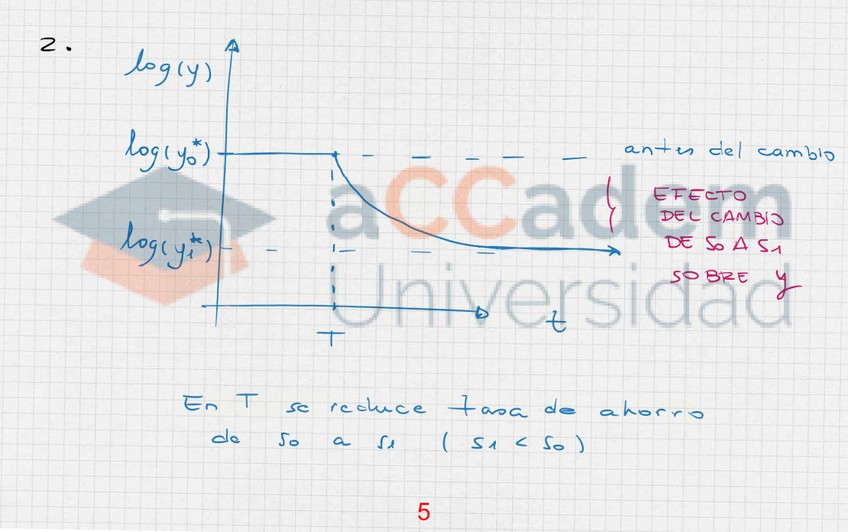 2.
log(y)
log(y₀*)
antes del cambio
EFECTO
DEL CAMBIO
DE S0 A S1
SOBRE y
log(y₁*)
aCCadem
Universidad
t
T
En T se reduce tasa de ahorro
de s0 a s1 ( s1 < s0 )
5